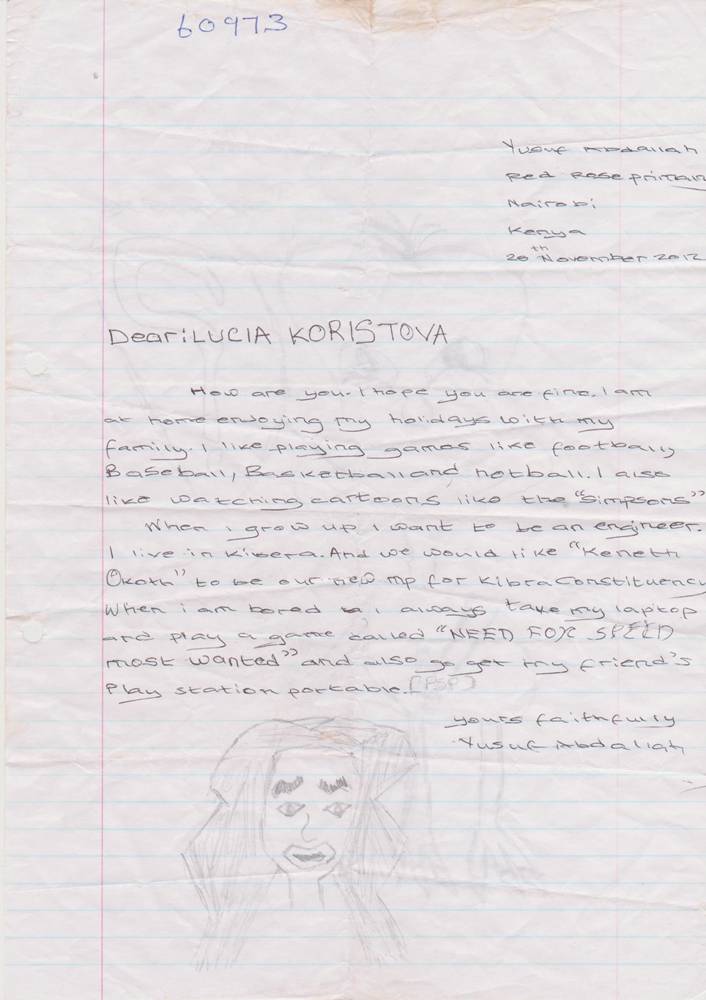 60973
Yusuf Abdallah
Red Rose primar
Nairobi
Kenya
20th November 2012
Dear: LUCIA KORISTOVA
How are you. I hope you are fine. I am
at home enjoying my holidays with my
family. I like playing games like football,
Baseball, Basketball and hotball. I also
like watching cartoons like the "Simpsons"
When i grow up i want to be an engineer.
I live in Kibera. And we would like "Keneth
Okoth" to be our new mp for Kibra Constituency
When i am bored i always take my laptop
and play a game called "NEED FOR SPEED
most wanted" and also go get my friend's
Play station portable. [PSP]
yours faithfully
Yusuf Abdallah